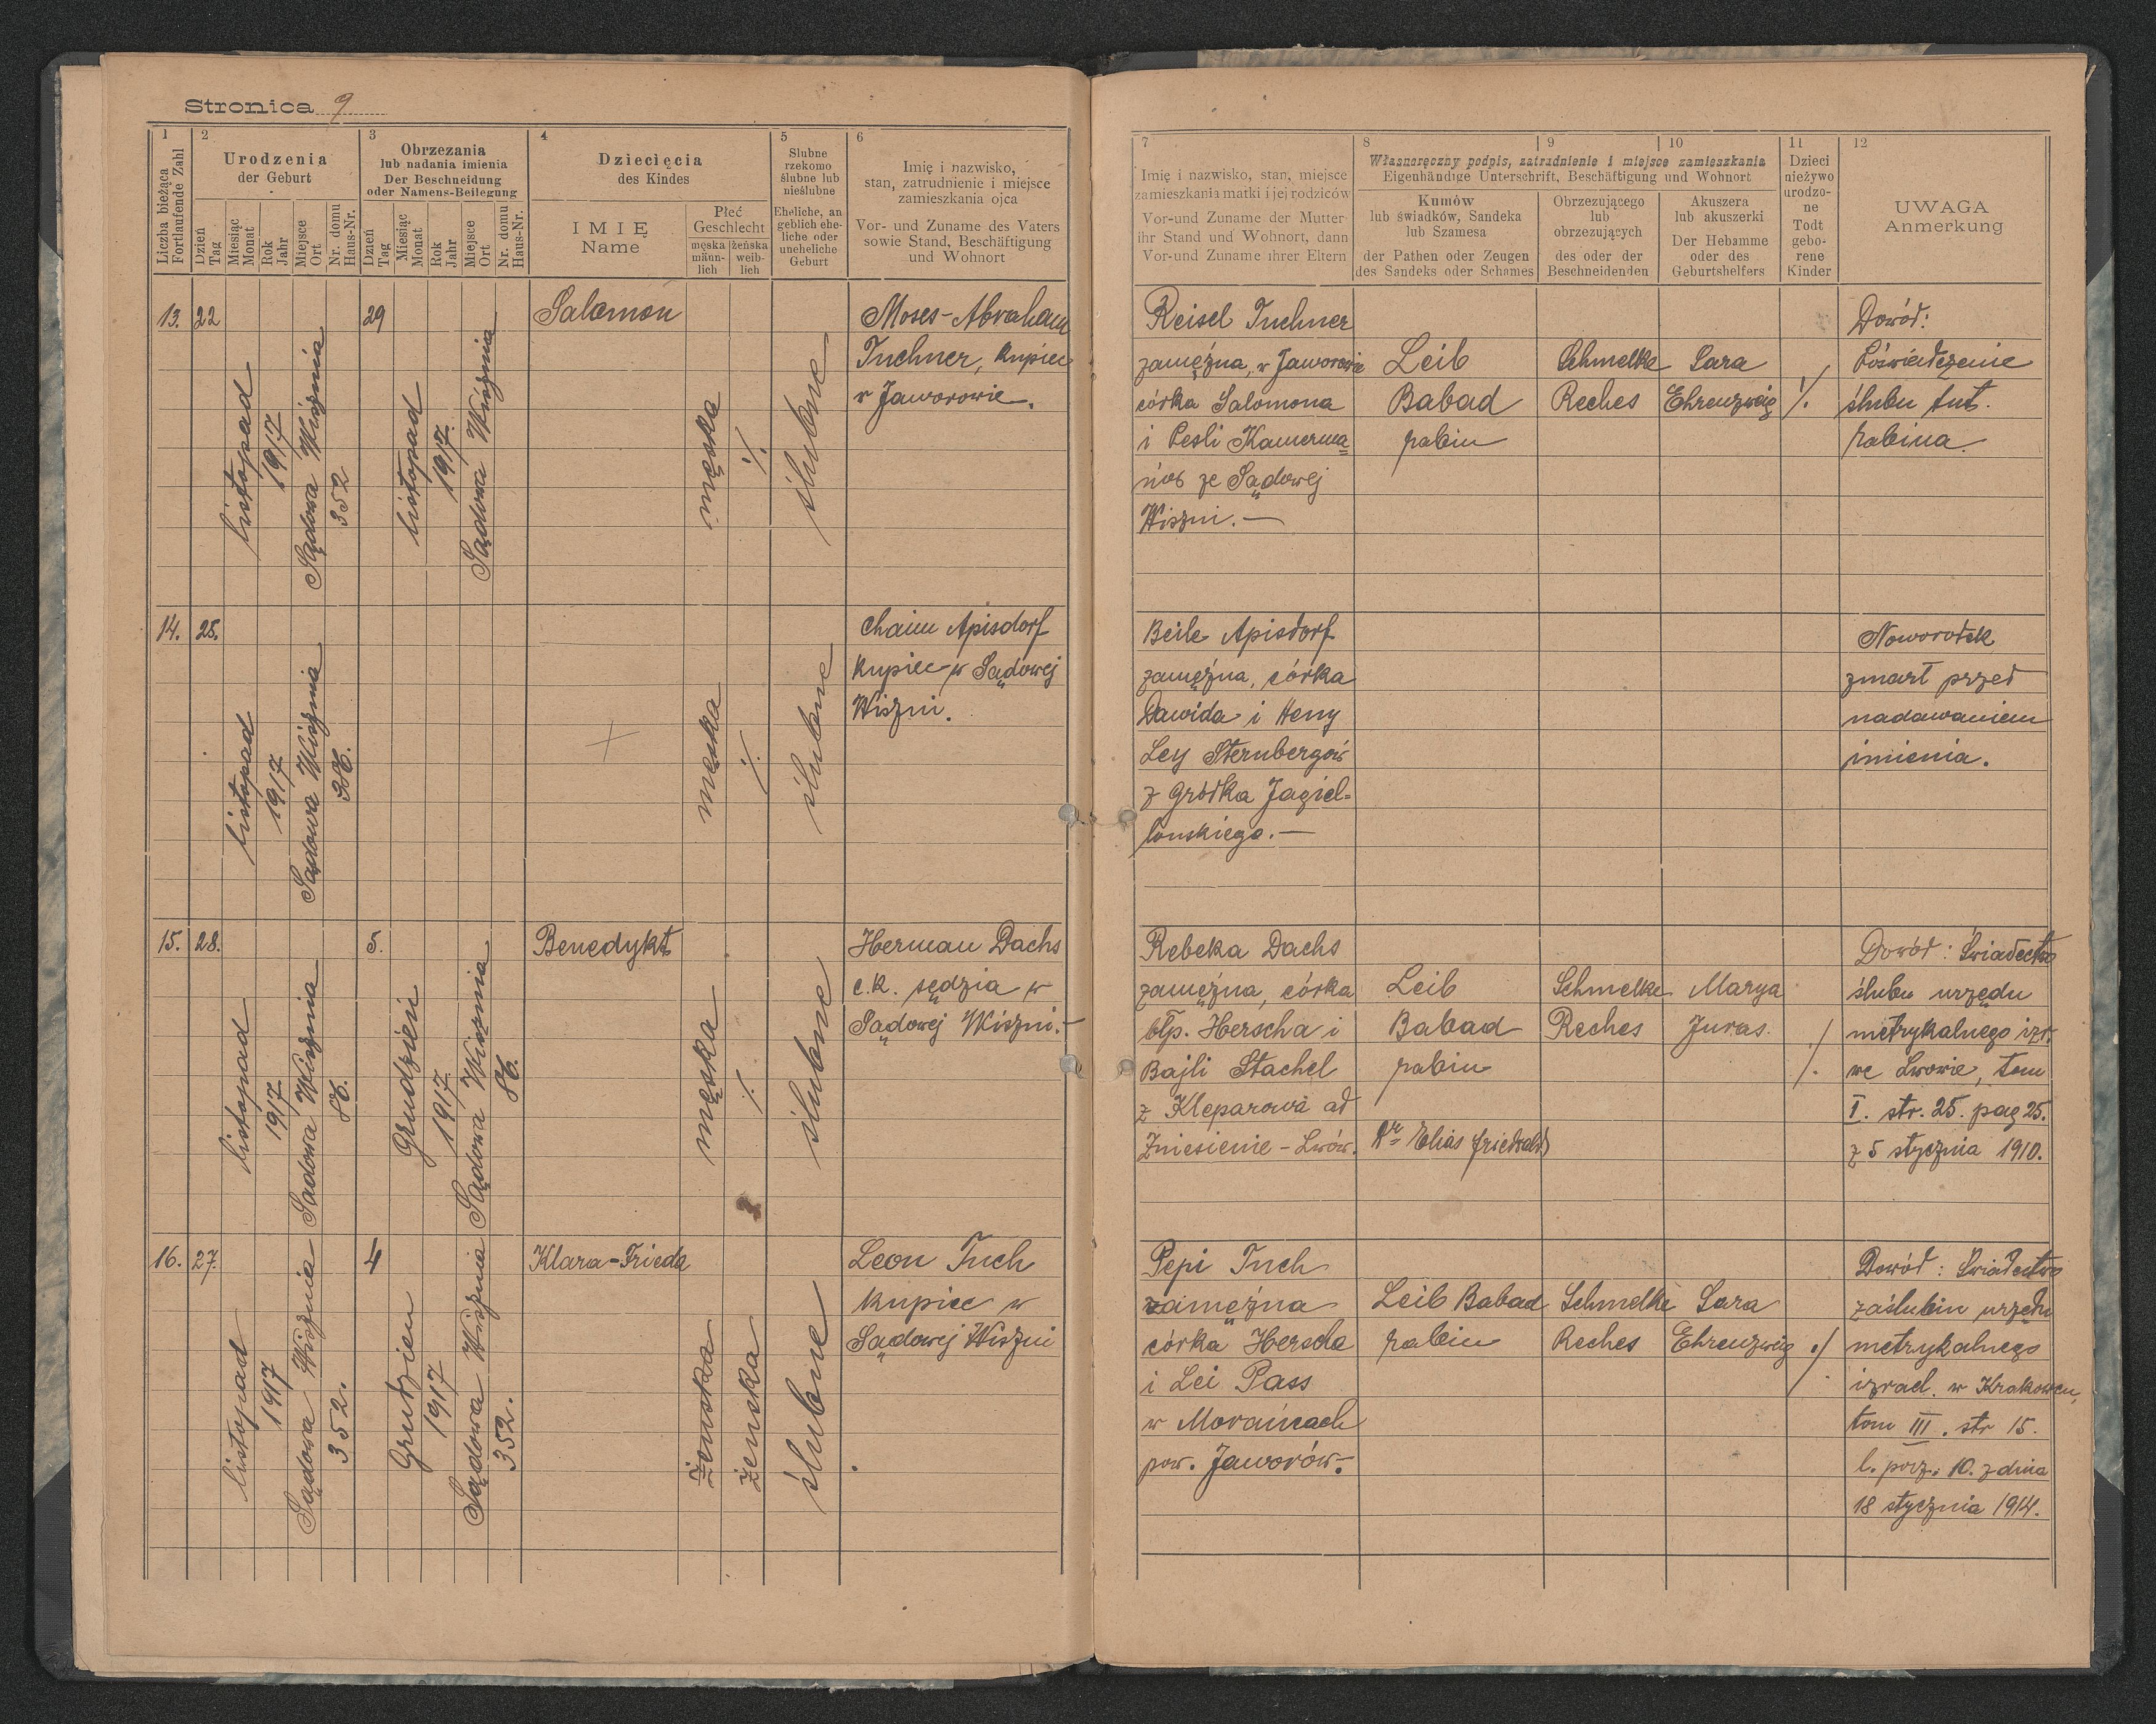 Stronica 9
1
2
3
4
5
6
Liczba bieżąca
Fortlaufende Zahl
Urodzenia
der Geburt
Dzień
Tag
Miesiąc
Monat
Rok
Jahr
Miejsce
Ort
Nr. domu
Haus-Nr.
Obrzezania
lub nadania imienia
Der Beschneidung
oder Namens-Beilegung
Dzień
Tag
Miesiąc
Monat
Rok
Jahr
Miejsce
Ort
Nr. domu
Haus-Nr.
Dziecięcia
des Kindes
IMIĘ
Name
Płeć
Geschlecht
męska
männ-
lich
żeńska
weib-
lich
Ślubne
rzekomo
ślubne lub
nieślubne
Eheliche, an
geblich ehe-
liche oder
uneheliche
Geburt
Imię i nazwisko,
stan, zatrudnienie i miejsce
zamieszkania ojca
Vor- und Zuname des Vaters
sowie Stand, Beschäftigung
und Wohnort
7
8
9
10
11
12
Imię i nazwisko, stan, miejsce
zamieszkania matki i jej rodziców
Vor-und Zuname der Mutter
ihr Stand und Wohnort, dann
Vor-und Zuname ihrer Eltern
Własnoręczny podpis, zatrudnienie i miejsce zamieszkania
Eigenhändige Unterschrift, Beschäftigung und Wohnort
Kumów
lub świadków, Sandeka
lub Szamesa
der Pathen oder Zeugen
des Sandeks oder Schames
Obrzezującego
lub
obrzezujących
des oder der
Beschneidenden
Akuszera
lub akuszerki
Der Hebamme
oder des
Geburtshelfers
Dzieci
nieżywo
urodzo-
ne
Todt
gebo-
rene
Kinder
UWAGA
Anmerkung
13.
22
listopad
1917
Sądowa Wisznia
352
29
listopad
1917.
Sądowa Wisznia
Salomon
męska
·/.
ślubne
Moses-Abraham
Tuchner, kupiec
w Jaworowie.
Reisel Tuchner
zamężna, w Jaworowie
córka Salomona
i Pesli Kamerma=
nów ze Sądowej
Wiszni.—
Leib
Babad
rabin
Schmelke
Reches
Sara
Ehrenzweig
·/.
Dowód:
Poświadczenie
ślubu tut.
rabina.
14.
25.
listopad
1917
Sądowa Wisznia
męska
·/.
ślubne
Chaim Apisdorf
kupiec w Sądowej
Wiszni.
Beile Apisdorf
zamężna, córka
Dawida i Heny
Ley Sternbergów
z Gródka Jagiel=
lonskiego.—
Noworodek
zmarł przed
nadawaniem
imienia.
15.
28.
listopad
1917
Sadowa Wisznia
86.
5.
Grudzień
1917.
Sądowa Wisznia
86.
Benedykt
męska
·/.
ślubne
Herman Dachs
c.k. sędzia w
Sądowej Wiszni.—
Rebeka Dachs
zamężna, córka
błp. Herscha i
Bajli Stachel
z Kleparowa ad
Zniesienie - Lwów.
Leib
Babad
rabin
Dr Elias Friedwald
Schmelke
Reches
Marya
Juras.
·/.
Dowód: Świadectwo
ślubu urzędu
metrykalnego izr.
we Lwowie, tom
I. str. 25. pag 25.
z 5 stycznia 1910.
16.
27.
listopad
1917
Sądowa Wisznia
352.
4
Grudzien
1917
Sądowa Wisznia
352.
Klara-Frieda
żenska
żenska
ślubne
Leon Tuch
kupiec w
Sądowej Wiszni
Pepi Tuch
zamężna
córka Herscha
i Lei Pass
w Morańcach
pow. Jaworów.
Leib Babad
rabin
Schmelke
Reches
Sara
Ehrenzweig
·/.
Dowód: Świadectwo
zaślubin urzędu
metrykalnego
izrael. w Krakowcu,
tom III. str 15.
l. porz. 10. z dnia
18 stycznia 1914.